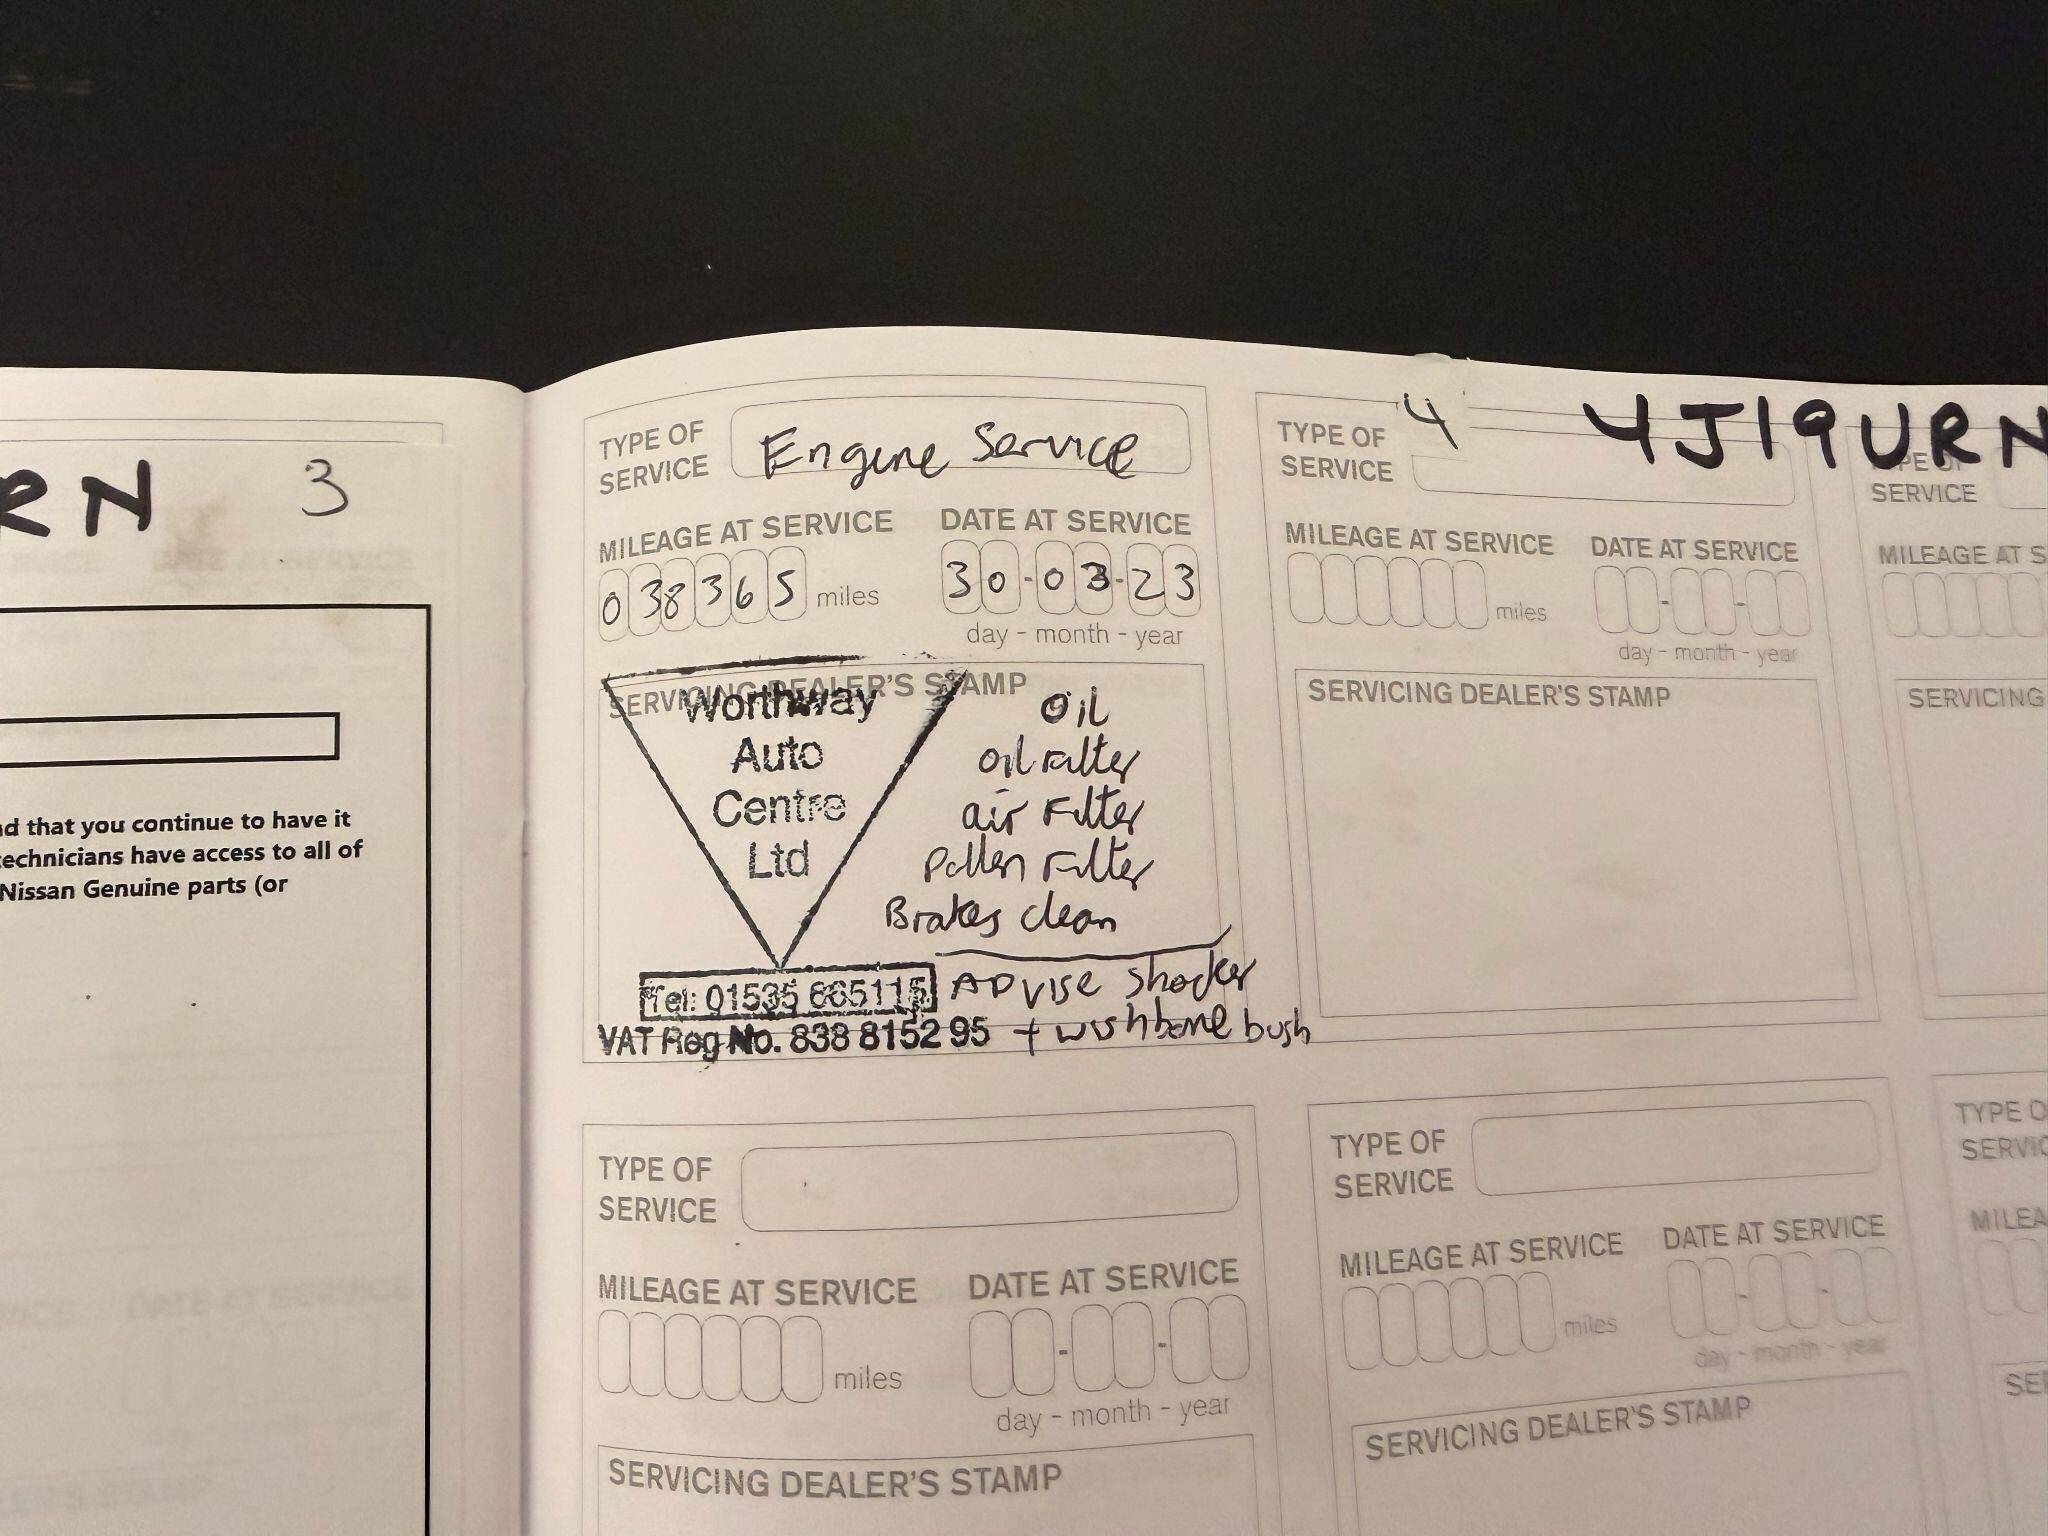 RN 3
d that you continue to have it
technicians have access to all of
Nissan Genuine parts (or
TYPE OF
SERVICE
Engine Service
MILEAGE AT SERVICE
038365 miles
DATE AT SERVICE
30-03-23
day - month - year
SERVICING DEALER'S STAMP
Worthway
Auto
Centre
Ltd
Tel: 01535 665115
VAT Reg No. 838 8152 95
Oil
Oil Filter
air Filter
Pollen Filter
Brakes clean
ADVISE shocker
+ wishbone bush
4 4J19URN
TYPE OF
SERVICE
MILEAGE AT SERVICE
miles
DATE AT SERVICE
day - month - year
SERVICING DEALER'S STAMP
TYPE OF
SERVICE
MILEAGE AT S
SERVICING
TYPE OF
SERVICE
MILEAGE AT SERVICE
miles
DATE AT SERVICE
day - month - year
SERVICING DEALER'S STAMP
TYPE OF
SERVICE
MILEAGE AT SERVICE
miles
DATE AT SERVICE
day - month - year
SERVICING DEALER'S STAMP
TYPE O
SERVIC
MILEA
SE